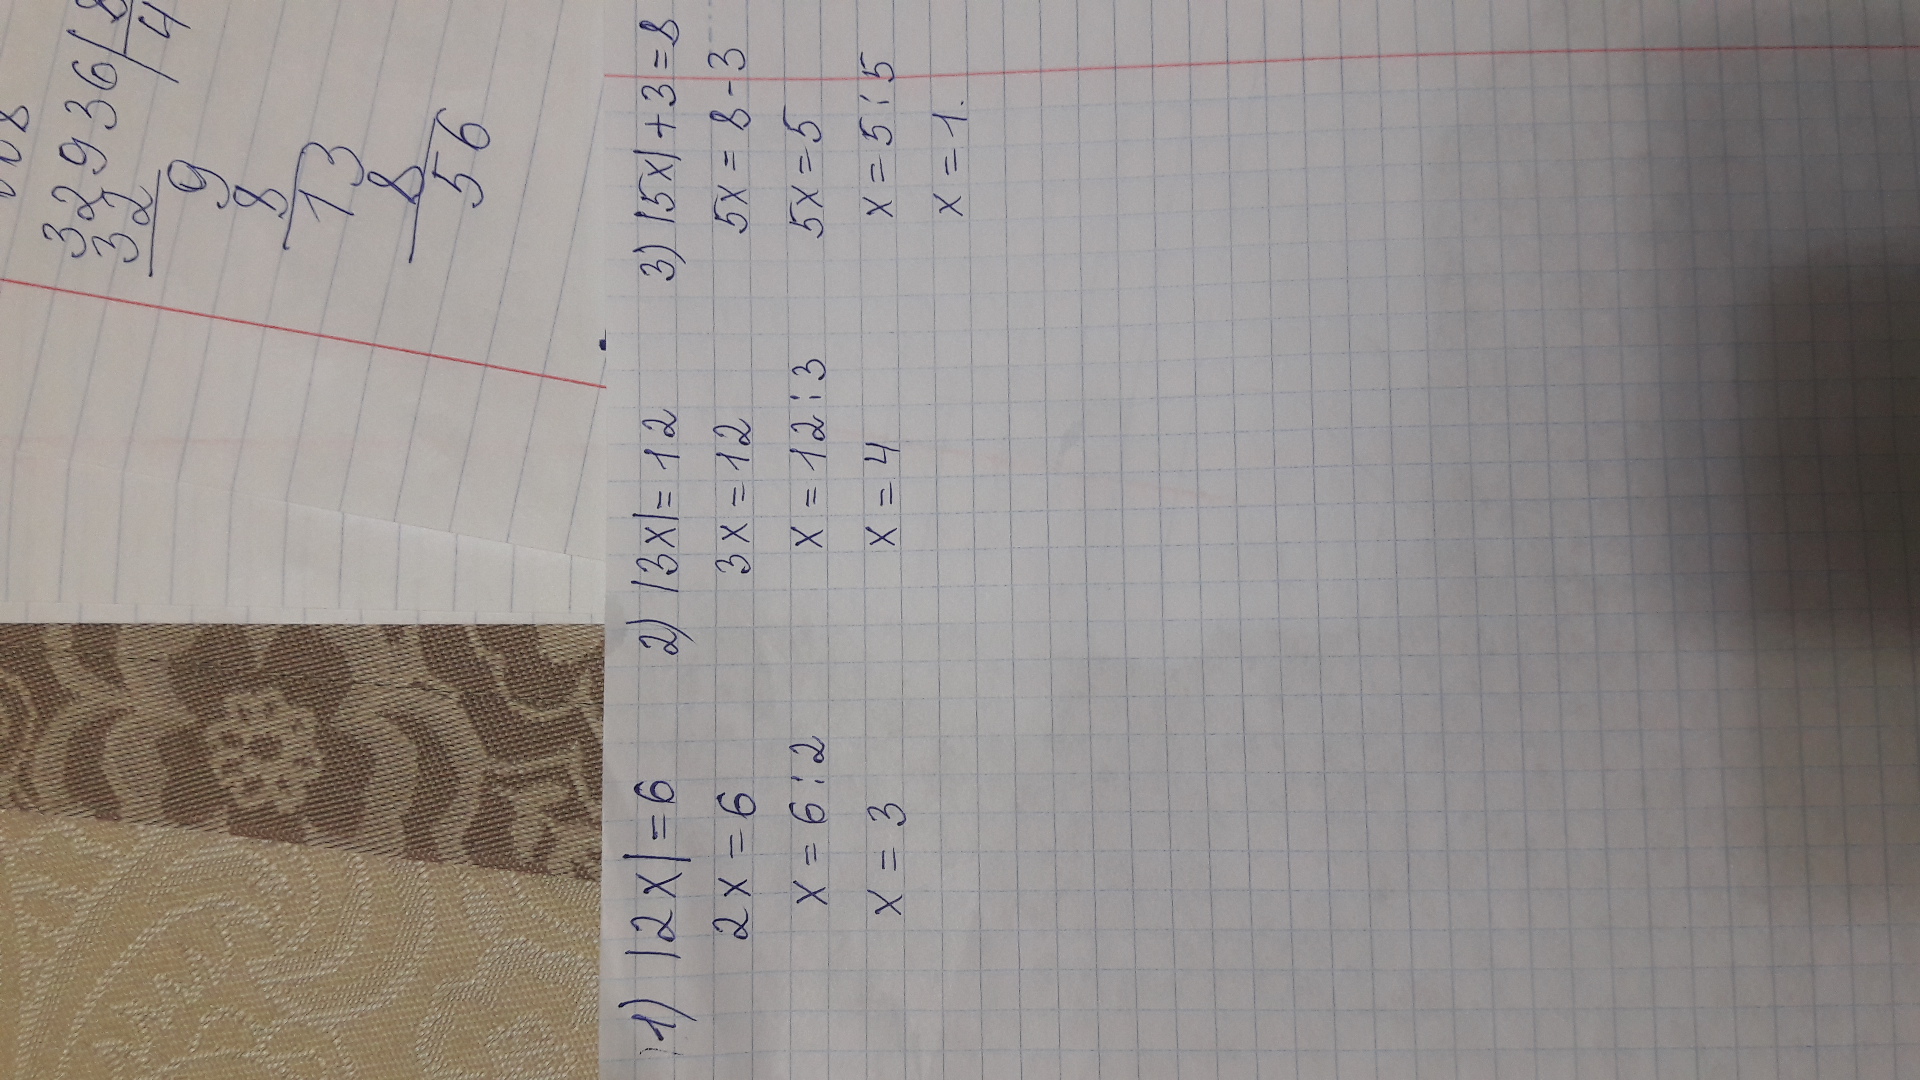 32936 | 8
32 4
9
8
13
8
56
1) |2x| = 6
2x = 6
x = 6 : 2
x = 3
2) |3x| = 12
3x = 12
x = 12 : 3
x = 4
3) |5x| + 3 = 8
5x = 8 - 3
5x = 5
x = 5 : 5
x = 1.